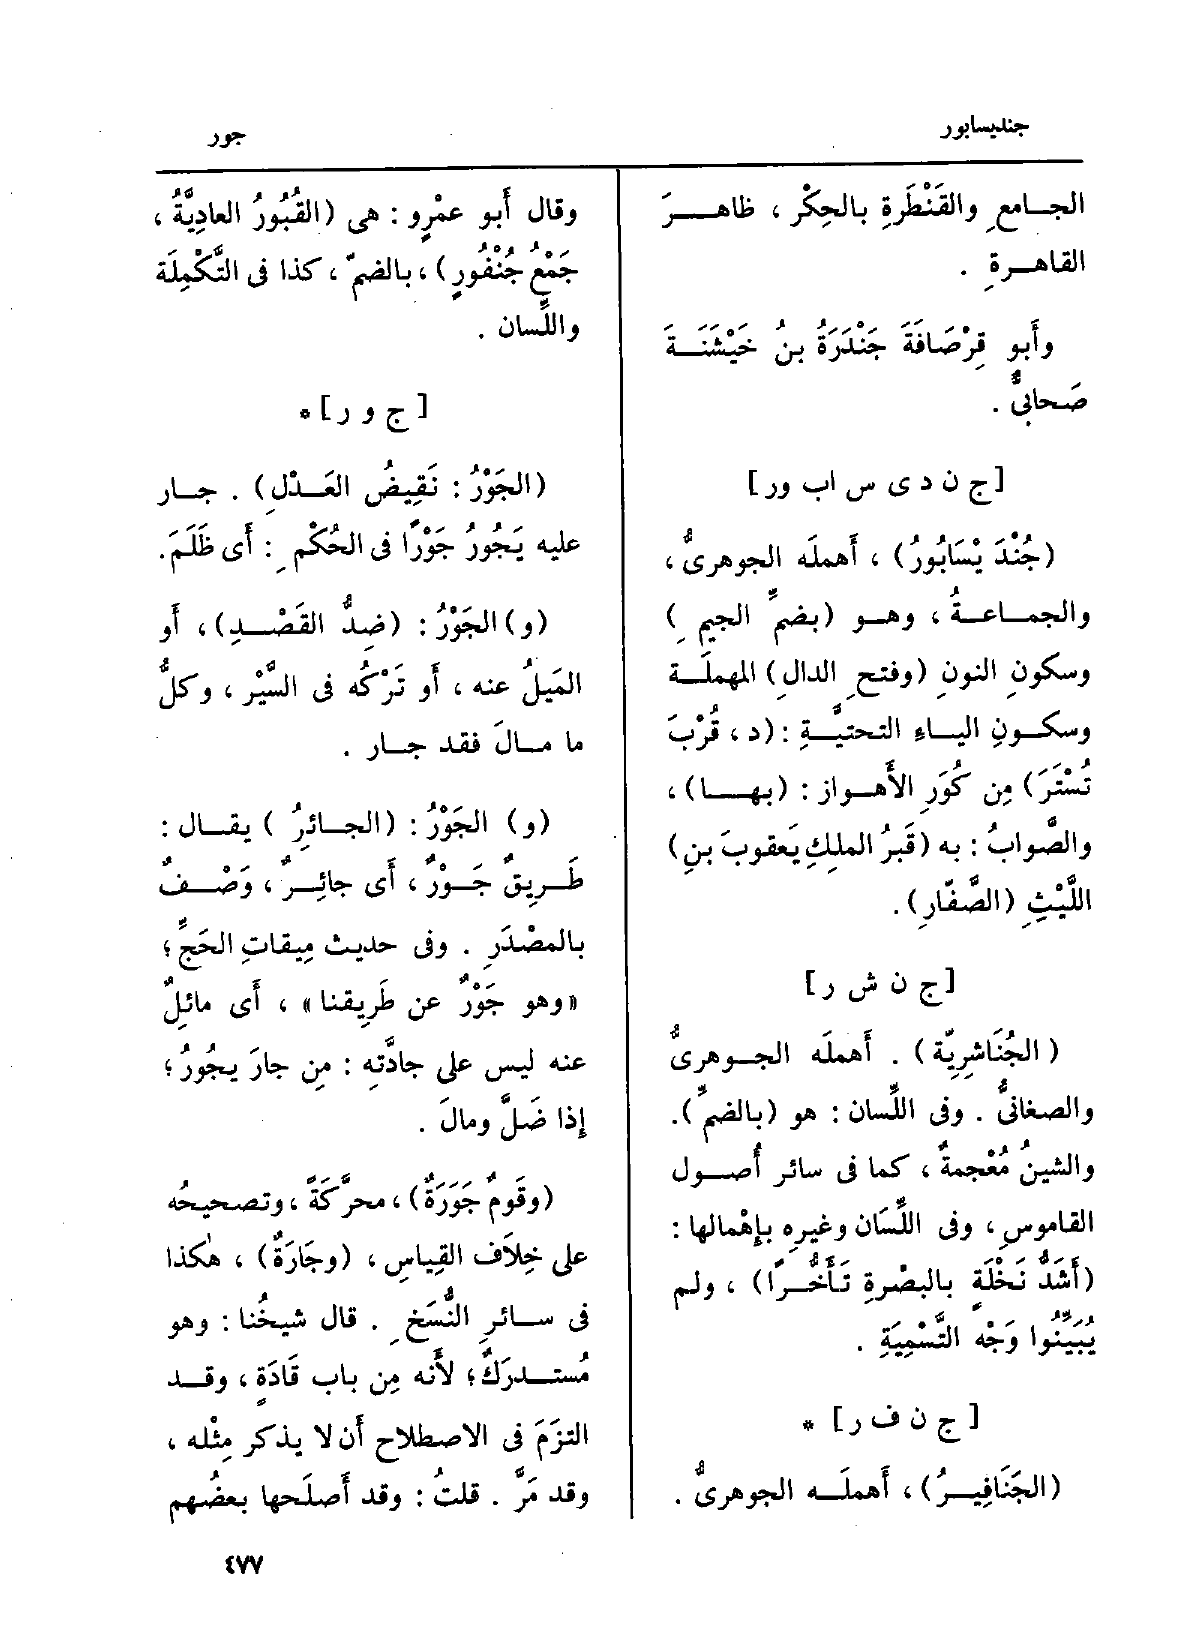 جنديسابور
جور
الجامعِ والقَنْطَرةِ بالحِكْر ، ظاهرَ
القاهرةِ .
وأَبو قِرْصَافَةَ جَنْدَرَةُ بنُ خَيْشَنَةَ
صَحابىٌّ .
[ج ن د ى س ا ب و ر]
(جُنْدَ يْسَابُورُ) ، أَهملَه الجوهرىُّ ،
والجماعةُ ، وهو (بضمِّ الجيمِ)
وسكونِ النونِ (وفتحِ الدالِ) المهملَة
وسكونِ الياءِ التحتيَّةِ : (د ، قُرْبَ
تُسْتَرَ) مِن كُوَرِ الأَهواز : (بها) ،
والصَّوابُ : به (قَبرُ الملِكِ يَعقوبَ بنِ)
اللَّيْثِ (الصَّفَّارِ) .
[ج ن ش ر]
(الجُنَاشِرِيّة) . أَهملَه الجوهرىُّ
والصغانىُّ . وفى اللِّسان : هو (بالضمِّ).
والشينُ مُعْجمةٌ ، كما فى سائر أُصول
القاموسِ ، وفى اللِّسَان وغيرِه بإِهْمالها :
(أَشَدُّ نَخْلَةٍ بالبصْرةِ تَأَخُّرًا) ، ولم
يُبَيِّنُوا وَجْه التَّسْمِيَةِ .
[ج ن ف ر] *
(الجَنَافِيرُ) ، أَهملَه الجوهرىُّ .
وقال أَبو عمْرٍو : هى (القُبُورُ العادِيَّةُ ،
جَمْعُ جُنْفُورٍ) ، بالضمّ ، كذا فى التَّكْمِلَة
واللِّسان .
[ج و ر] *
(الجَوْرُ : نَقِيضُ العَدْلِ) . جار
عليه يَجُورُ جَوْرًا فى الحُكْمِ : أَى ظَلَمَ.
(و) الجَوْرُ : (ضِدُّ القَصْدِ) ، أَو
المَيلُ عنه ، أَو تَرْكُه فى السَّيْر ، وكلُّ
ما مالَ فقد جار .
(و) الجَوْرُ : (الجائرُ) يقال :
طَرِيقٌ جَوْرٌ ، أَى جائِرٌ ، وَصْفٌ
بالمصْدَرِ . وفى حديث مِيقاتِ الحَجِّ ؛
«وهو جَوْرٌ عن طَرِيقنا» ، أَى مائلٌ
عنه ليس على جادَّتِه : مِن جارَ يجُورُ ؛
إِذا ضَلَّ ومالَ .
(وقَومٌ جَوَرَةٌ) ، محرَّكةً ، وتصحيحُه
على خِلَاف القِياسِ ، (وجَارَةٌ) ، هٰكذا
فى سائرِ النُّسَخِ . قال شيخُنا : وهو
مُستدرَكٌ ؛ لأَنه مِن باب قَادَةٍ ، وقد
التزَمَ فى الاصطلاح أَن لا يذكر مِثْله ،
وقد مَرَّ . قلتُ : وقد أَصلَحها بعضُهم
٤٧٧